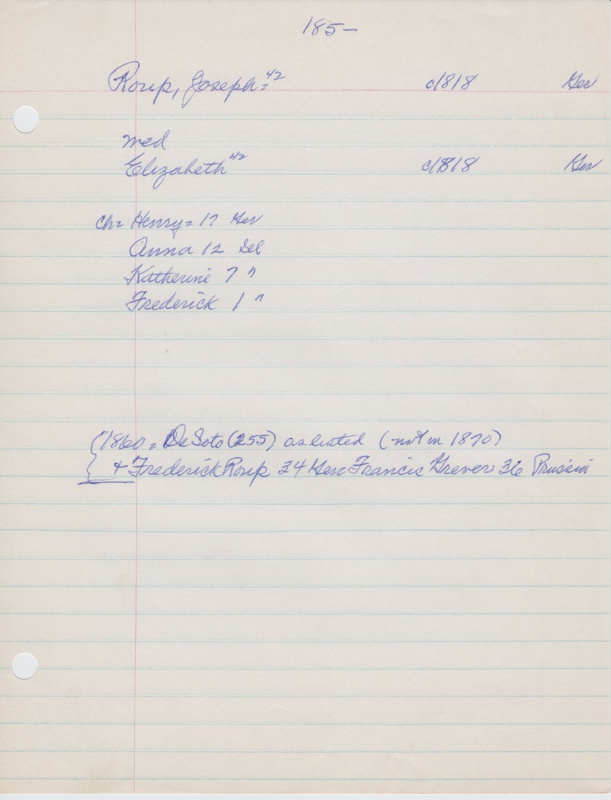 185-
Roup, Joseph = 42 c1818 Ger
med
Elizabeth 42 c1818 Ger
ch = Henry = 17 Ger
Anna 12 Ill
Katherine 7 "
Frederick 1 "
(1860 = DeSoto (255) as listed (not in 1870)
+ Frederick Roup 34 Ger Francis Grever 36 Prussia